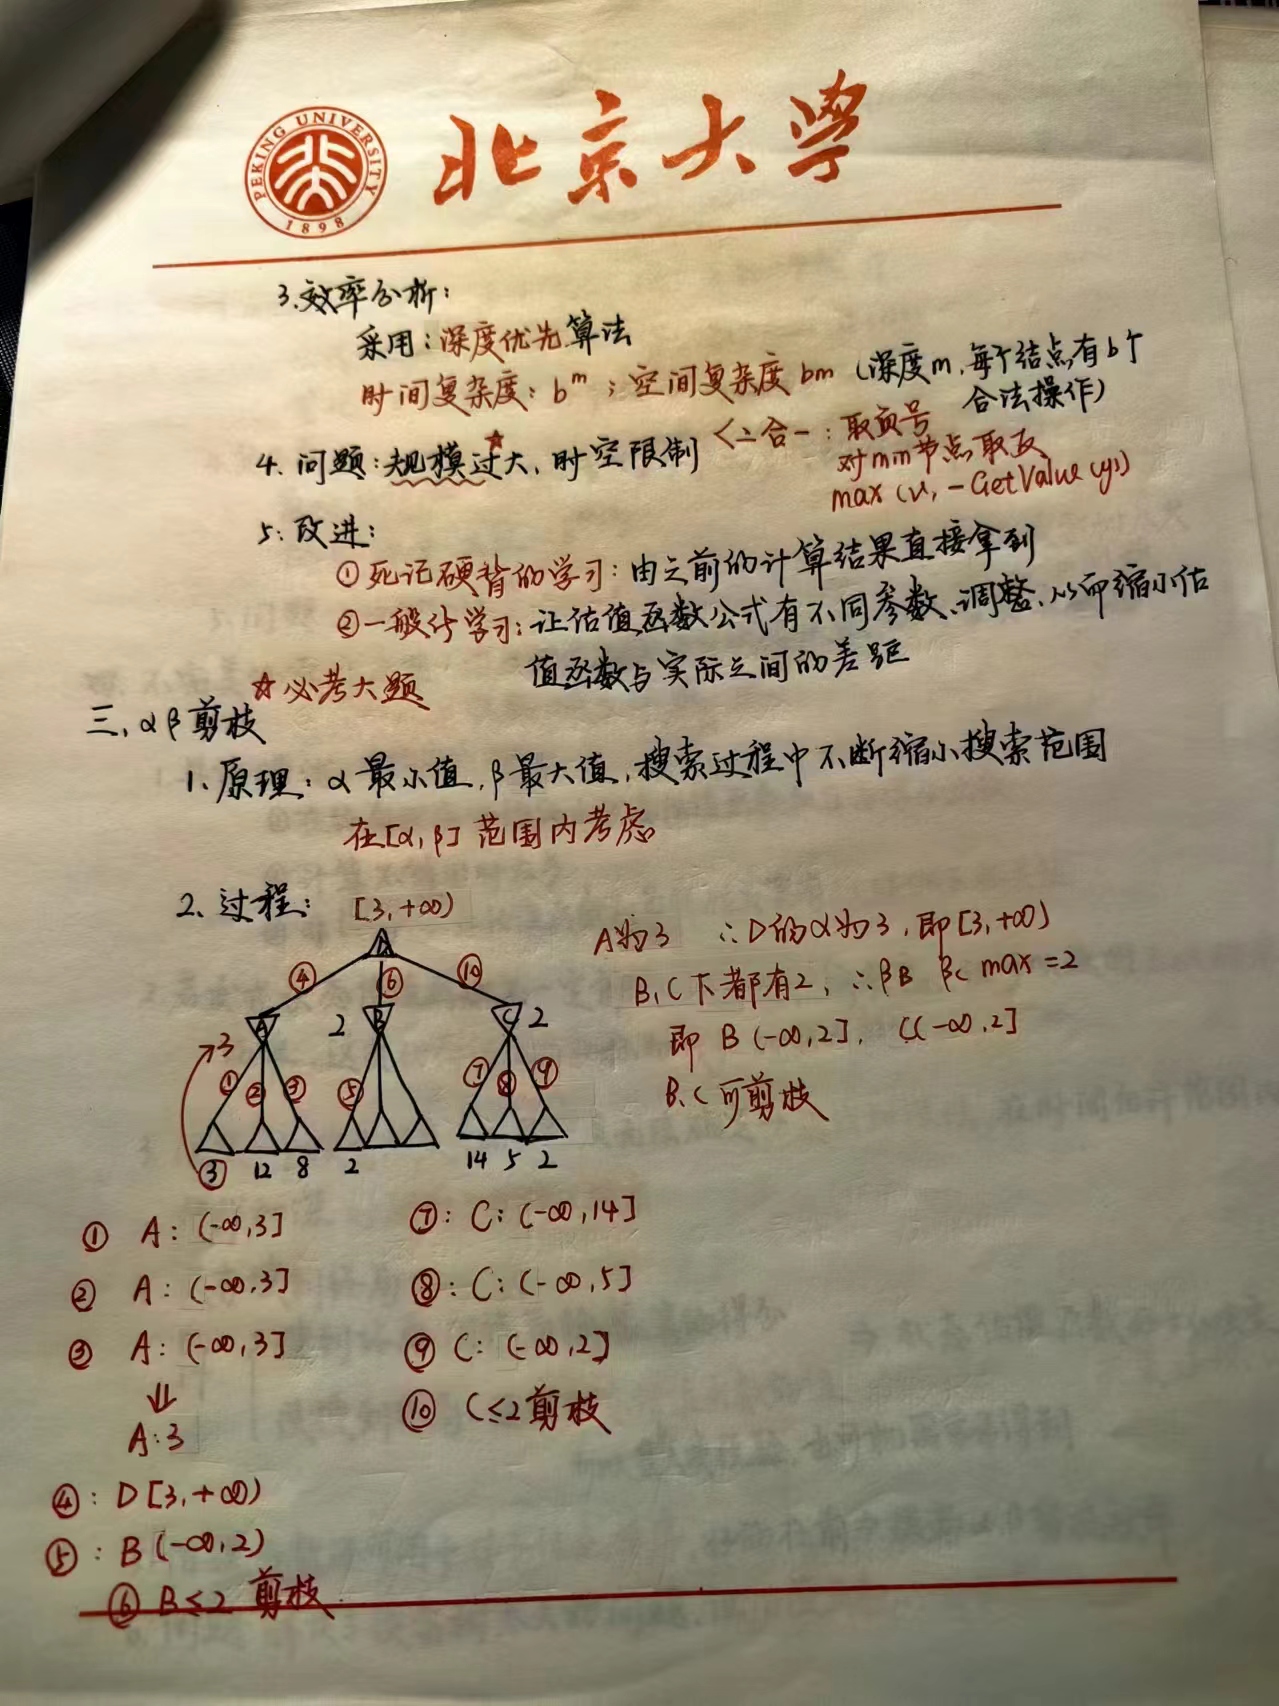 PEKING UNIVERSITY
1898
北京大学
3.效率分析:
采用:深度优先算法
时间复杂度: b^m ; 空间复杂度 bm (深度m,每个结点有b个
合法操作)
4. 问题:规模过大,时空限制
☆
<二合一:取负号
对min节点取反
max(v, -GetValue(y))
5. 改进:
①死记硬背的学习:由之前的计算结果直接拿到
②一般化学习:让估值函数公式有不同参数、调整,从而缩小估
值函数与实际之间的差距
☆必考大题
三、αβ剪枝
1、原理:α最小值,β最大值,搜索过程中不断缩小搜索范围
在[α,β]范围内考虑
2、过程: [3,+∞)
④ ⑥ ⑩
A B 2 C 2
3
① ② ③ ⑤ ⑦ ⑧ ⑨
③ 12 8 2 14 5 2
A为3 ∴D的α为3,即[3,+∞)
B,C下都有2, ∴βB βC max=2
即 B(-∞,2], C(-∞,2]
B、C可剪枝
① A: (-∞,3]
② A: (-∞,3]
③ A: (-∞,3]
⇓
A:3
④: D[3,+∞)
⑤: B(-∞,2)
⑥ B≤2 剪枝
⑦: C: (-∞,14]
⑧: C: (-∞,5]
⑨ C: (-∞,2]
⑩ C≤2剪枝